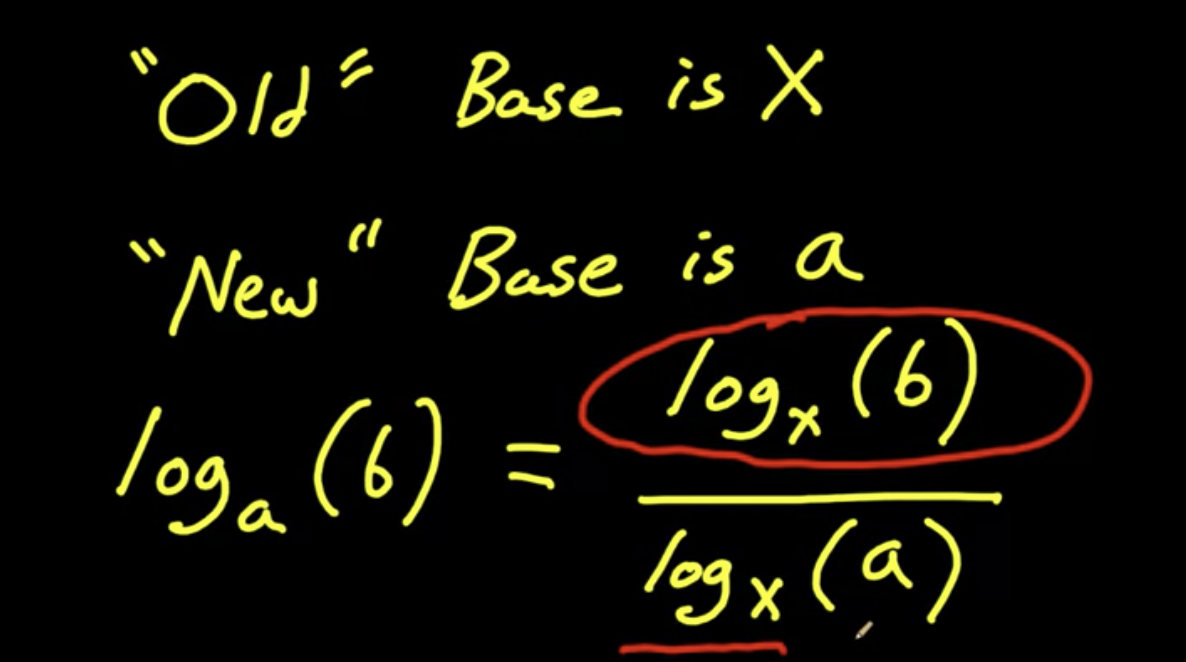 "Old" Base is X
"New" Base is a
logₐ(b) = logₓ(b) / logₓ(a)